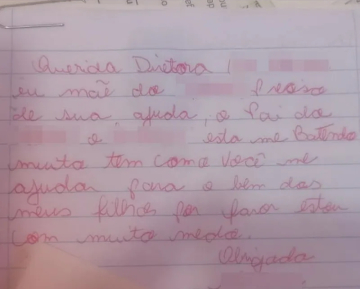 Querida Diretora
eu mãe do preciso
de sua ajuda, o Pai do
e esta me Batendo
muito tem como você me
ajudar para o bem dos
meus filhos por favor estou
com muito medo.
Obrigada